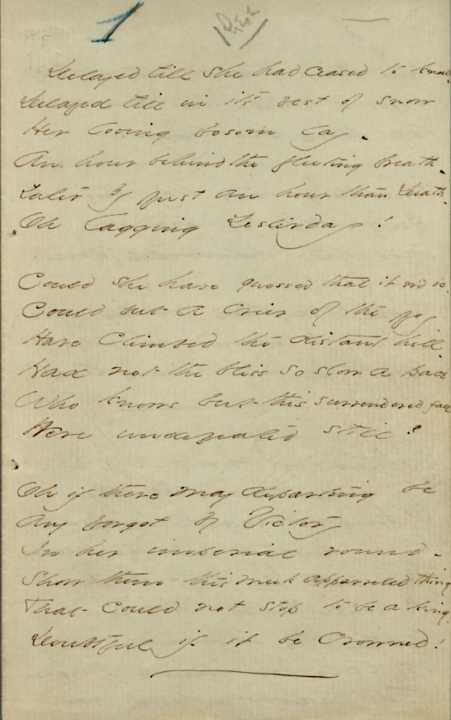 1
Delayed till she had ceased to know
Delayed till in its vest of snow
Her loving bosom lay.
An hour behind the fleeting breath.
Later by just an hour than Death.
Oh lagging Yesterday!
Could she have guessed that it wd be
Could but a crier of the joy
Have climbed the distant hill.
Had not the bliss so slow a pace
Who knows but this surrendered face
Were undefeated still?
Oh if there may departing be
Any forgot by Victory
In her imperial round.
Show them this meek apparreled thing
That could not stop to be a king.
Doubtful if it be Crowned!